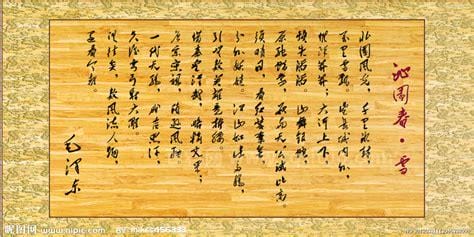 沁园春·雪
北国风光，千里冰封，
万里雪飘。望长城内外，
惟余莽莽；大河上下，
顿失滔滔。山舞银蛇，
原驰蜡象，欲与天公试比高。
须晴日，看红装素裹，
分外妖娆。江山如此多娇，
引无数英雄竞折腰。
惜秦皇汉武，略输文采；
唐宗宋祖，稍逊风骚。
一代天骄，成吉思汗，
只识弯弓射大雕。
俱往矣，数风流人物，
还看今朝。
毛泽东
昵图网 www.nipic.com BY: